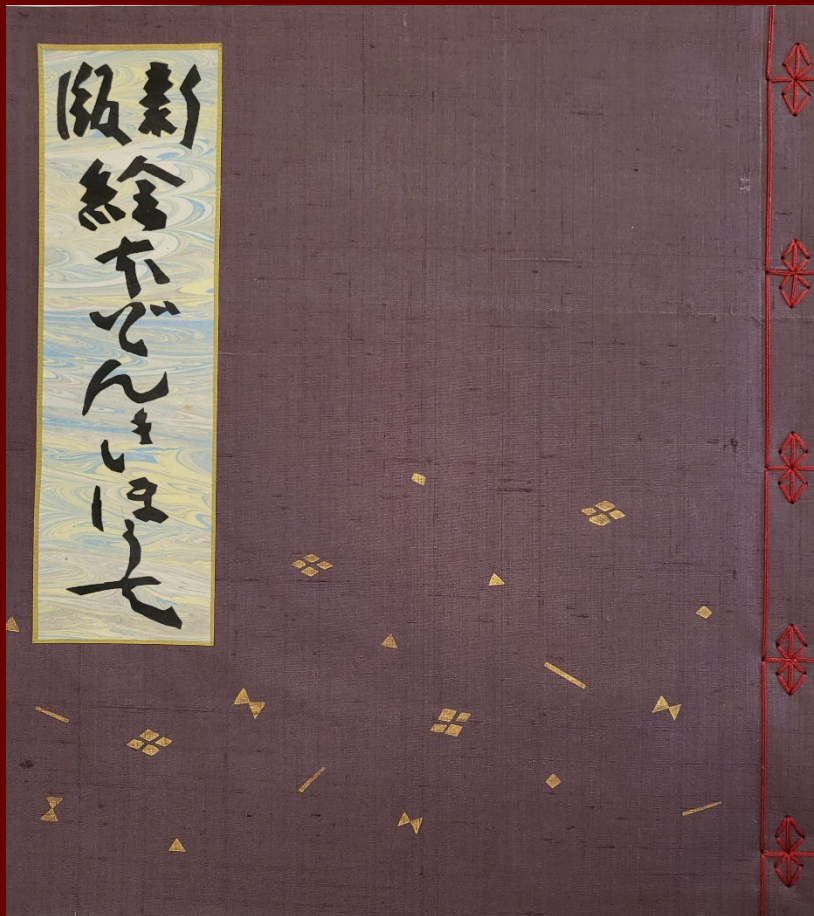 新版絵本どんきほうて